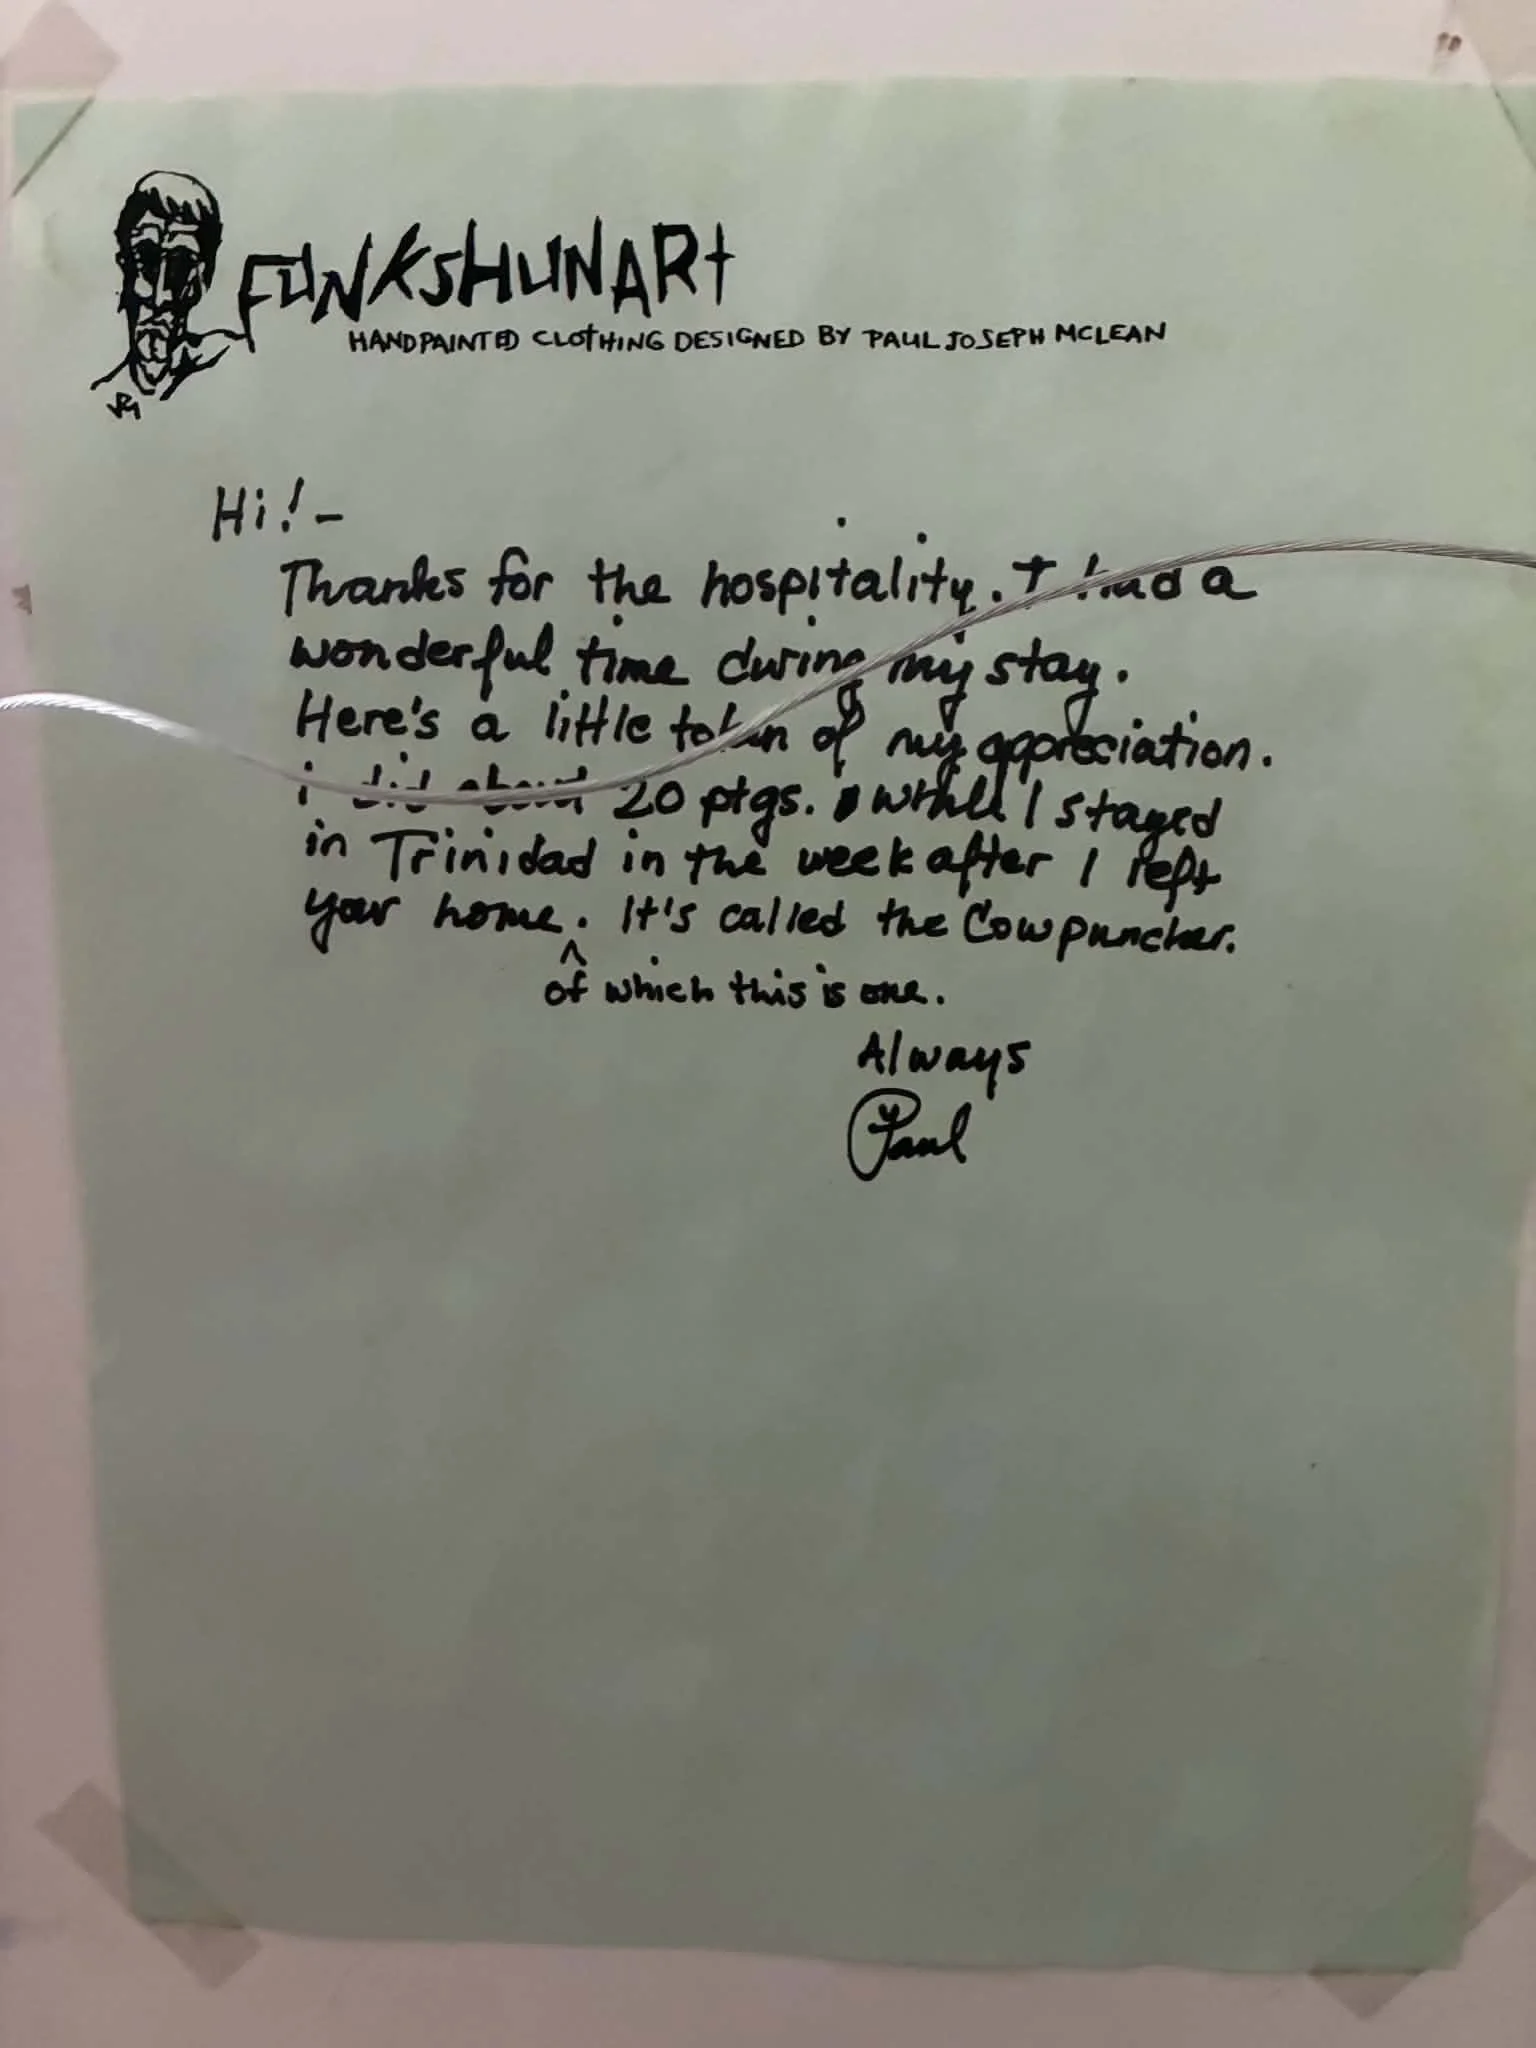 FUNKSHUNARt
HANDPAINTED CLOTHING DESIGNED BY PAUL JOSEPH MCLEAN
Hi! -
Thanks for the hospitality. I had a
wonderful time during my stay.
Here's a little token of my appreciation.
i did about 20 ptgs. while I stayed
in Trinidad in the week after I left
your home. It's called the Cowpuncher.
^
of which this is one.
Always
Paul